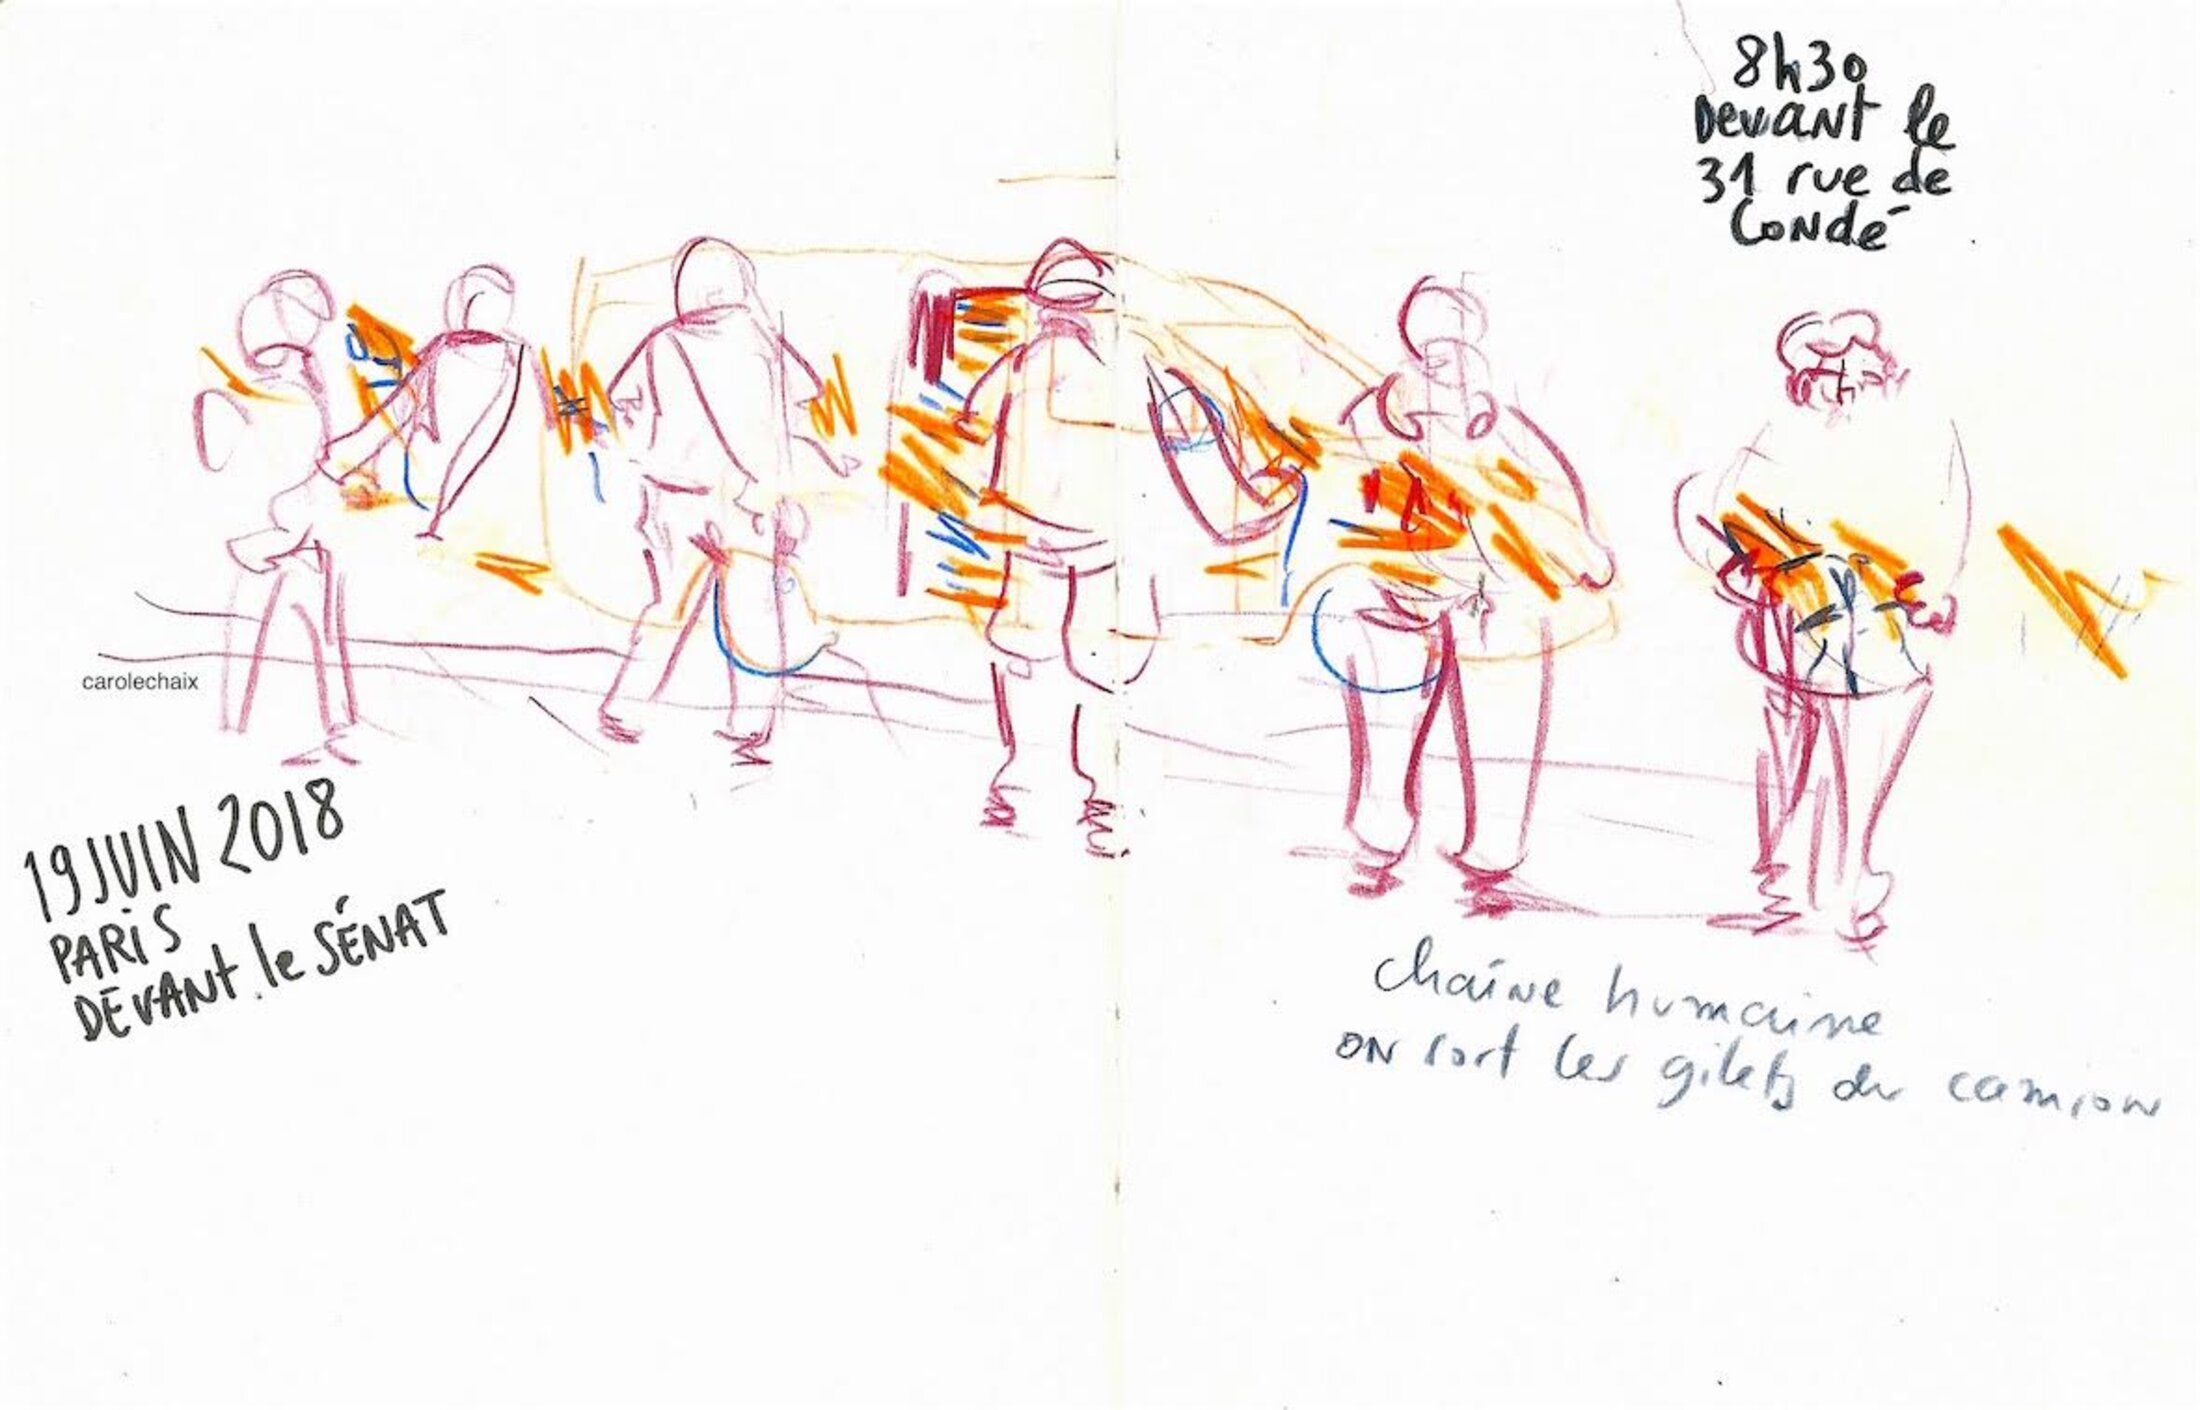 8h30
Devant le
31 rue de
Condé
carolechaix
19 JUIN 2018
PARIS
DEVANT le SÉNAT
chaîne humaine
on sort les gilets du camion